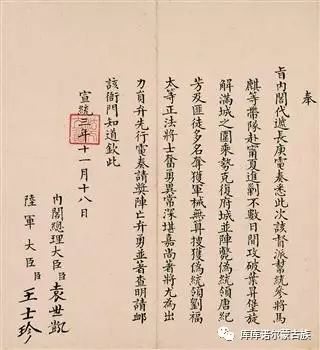 奉
旨內閣代遞長庚電奏悉此次該督派幫統參將馬
麒等帶隊赴甯夏追剿不數日間攻破葉昇堡旋
解滿城之圍乘勢克復府城並陣斃偽統領唐紀
芳及匪徒多名奪獲軍械無算搜獲偽統領劉福
太等正法將士奮勇異常深堪嘉尚著將尤為出
力員弁先行電奏請獎陣亡弁勇並著查明請卹
該衙門知道欽此
宣統三年十一月十八日
內閣總理大臣臣袁世凱
陸軍大臣臣王士珍
库库诺尔蒙古族